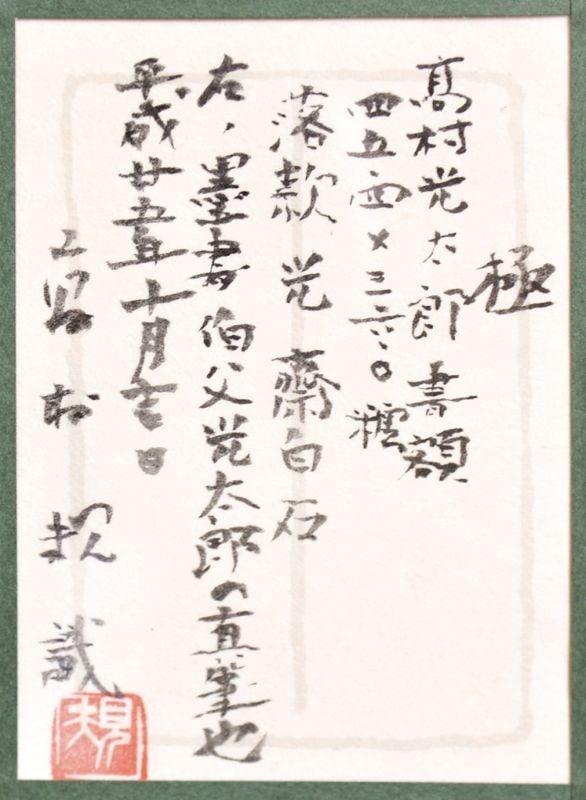 極
高村光太郎書額
四五・四×三六・〇糎
落款 光 齋白石
右ノ墨書伯父光太郎の真筆也
平成廿五年十月吉日
高村規識
規